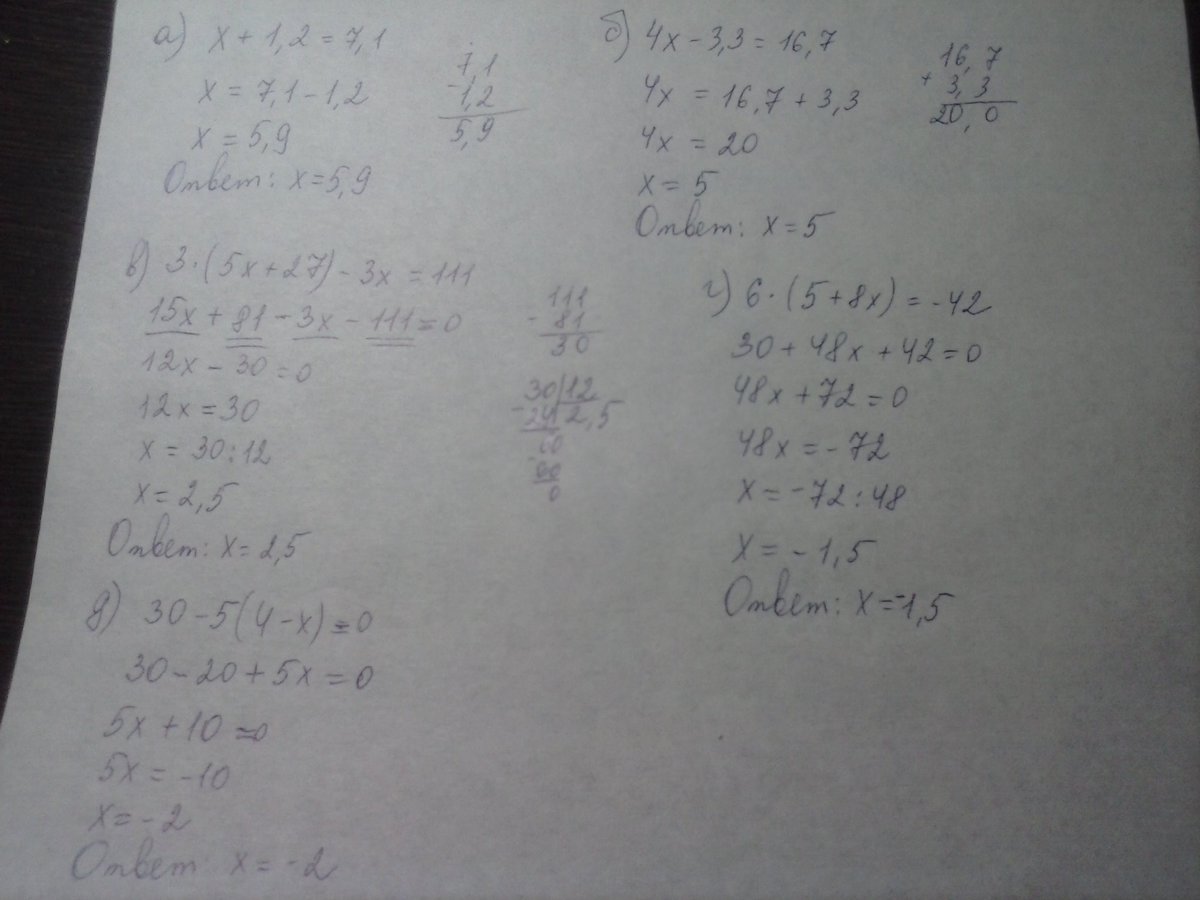 а) x + 1,2 = 7,1
x = 7,1 - 1,2
x = 5,9
Ответ: x = 5,9
7,1
- 1,2
5,9
б) 4x - 3,3 = 16,7
4x = 16,7 + 3,3
4x = 20
x = 5
Ответ: x = 5
16,7
+ 3,3
20,0
в) 3·(5x+27) - 3x = 111
15x + 81 - 3x - 111 = 0
12x - 30 = 0
12x = 30
x = 30:12
x = 2,5
Ответ: x = 2,5
111
- 81
30
30|12
- 24 2,5
60
- 60
0
г) 6·(5+8x) = -42
30 + 48x + 42 = 0
48x + 72 = 0
48x = -72
x = -72:48
x = -1,5
Ответ: x = -1,5
д) 30 - 5(4-x) = 0
30 - 20 + 5x = 0
5x + 10 = 0
5x = -10
x = -2
Ответ: x = -2